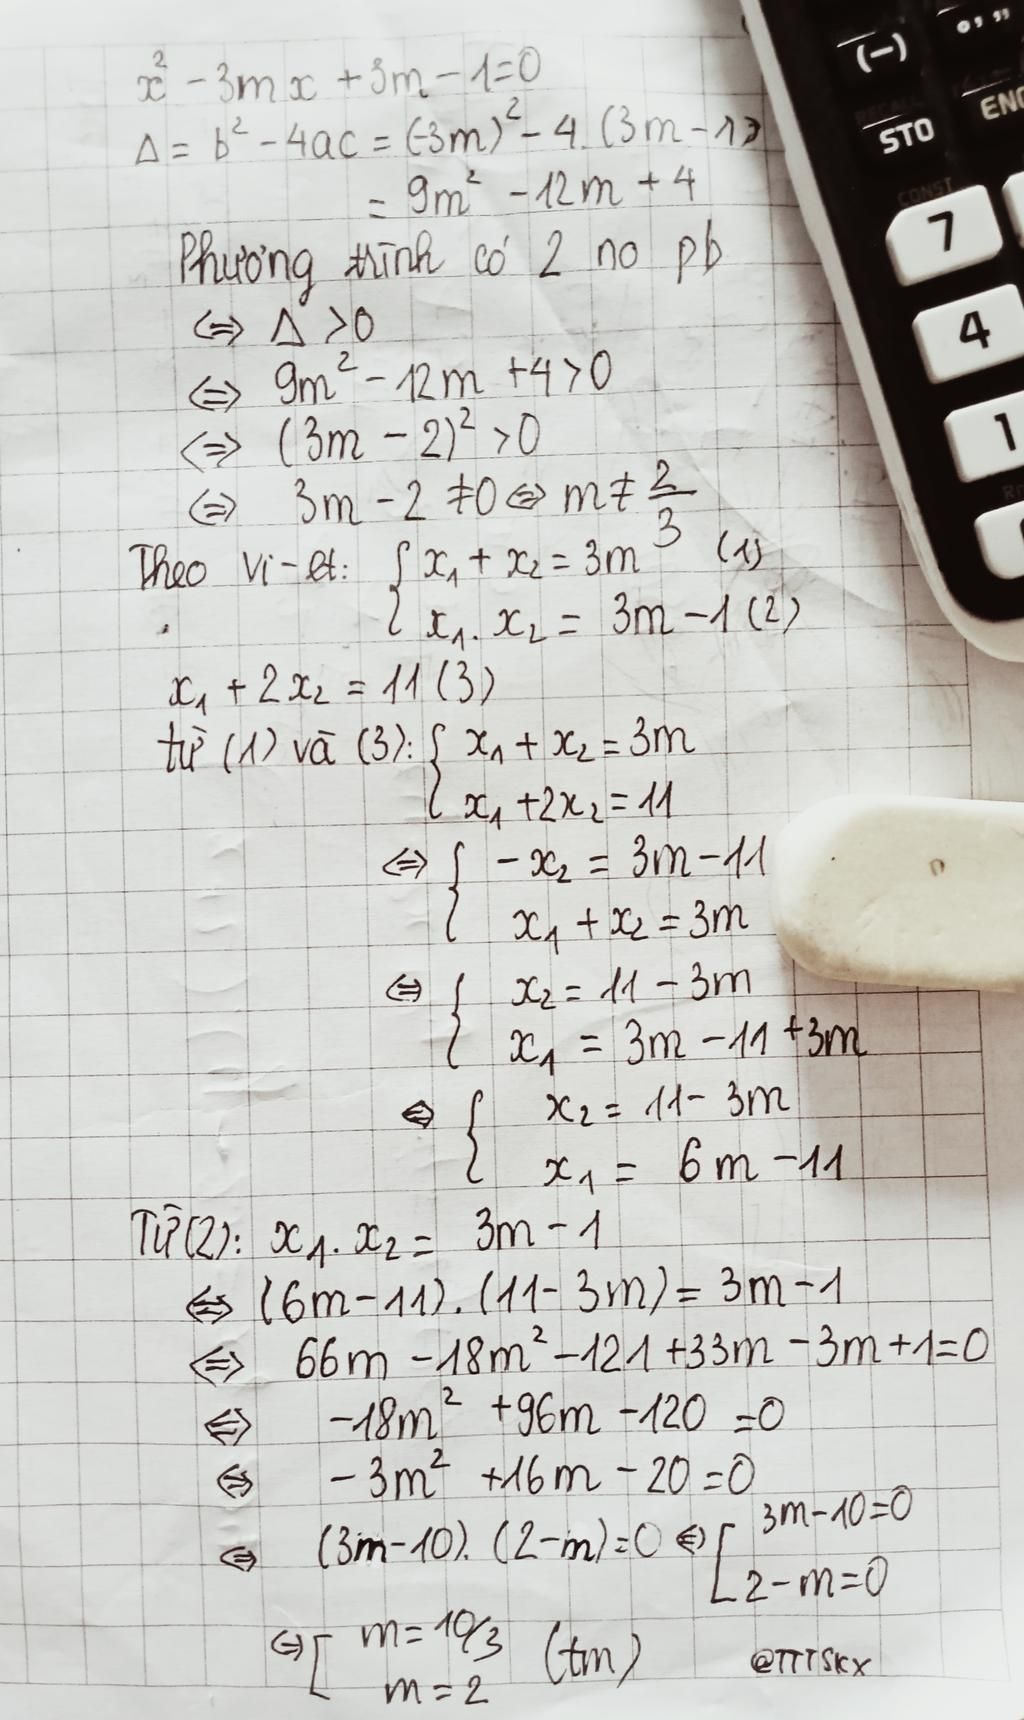 x² - 3mx + 3m - 1 = 0
Δ = b² - 4ac = (-3m)² - 4. (3m - 1)
= 9m² - 12m + 4
Phương trình có 2 no pb
⇔ Δ > 0
⇔ 9m² - 12m + 4 > 0
⇔ (3m - 2)² > 0
⇔ 3m - 2 ≠ 0 ⇔ m ≠ 2/3
Theo Vi-et: { x₁ + x₂ = 3m (1)
x₁. x₂ = 3m - 1 (2)
x₁ + 2x₂ = 11 (3)
từ (1) và (3): { x₁ + x₂ = 3m
x₁ + 2x₂ = 11
⇔ { -x₂ = 3m - 11
x₁ + x₂ = 3m
⇔ { x₂ = 11 - 3m
x₁ = 3m - 11 + 3m
⇔ { x₂ = 11 - 3m
x₁ = 6m - 11
Từ (2): x₁. x₂ = 3m - 1
⇔ (6m - 11). (11 - 3m) = 3m - 1
⇔ 66m - 18m² - 121 + 33m - 3m + 1 = 0
⇔ -18m² + 96m - 120 = 0
⇔ -3m² + 16m - 20 = 0
⇔ (3m - 10). (2 - m) = 0 ⇔ [ 3m - 10 = 0
2 - m = 0
⇔ [ m = 10/3
m = 2 (tm)
@TTTSKX
(-)
° , ,,
STO
ENG
CONST
7
4
1